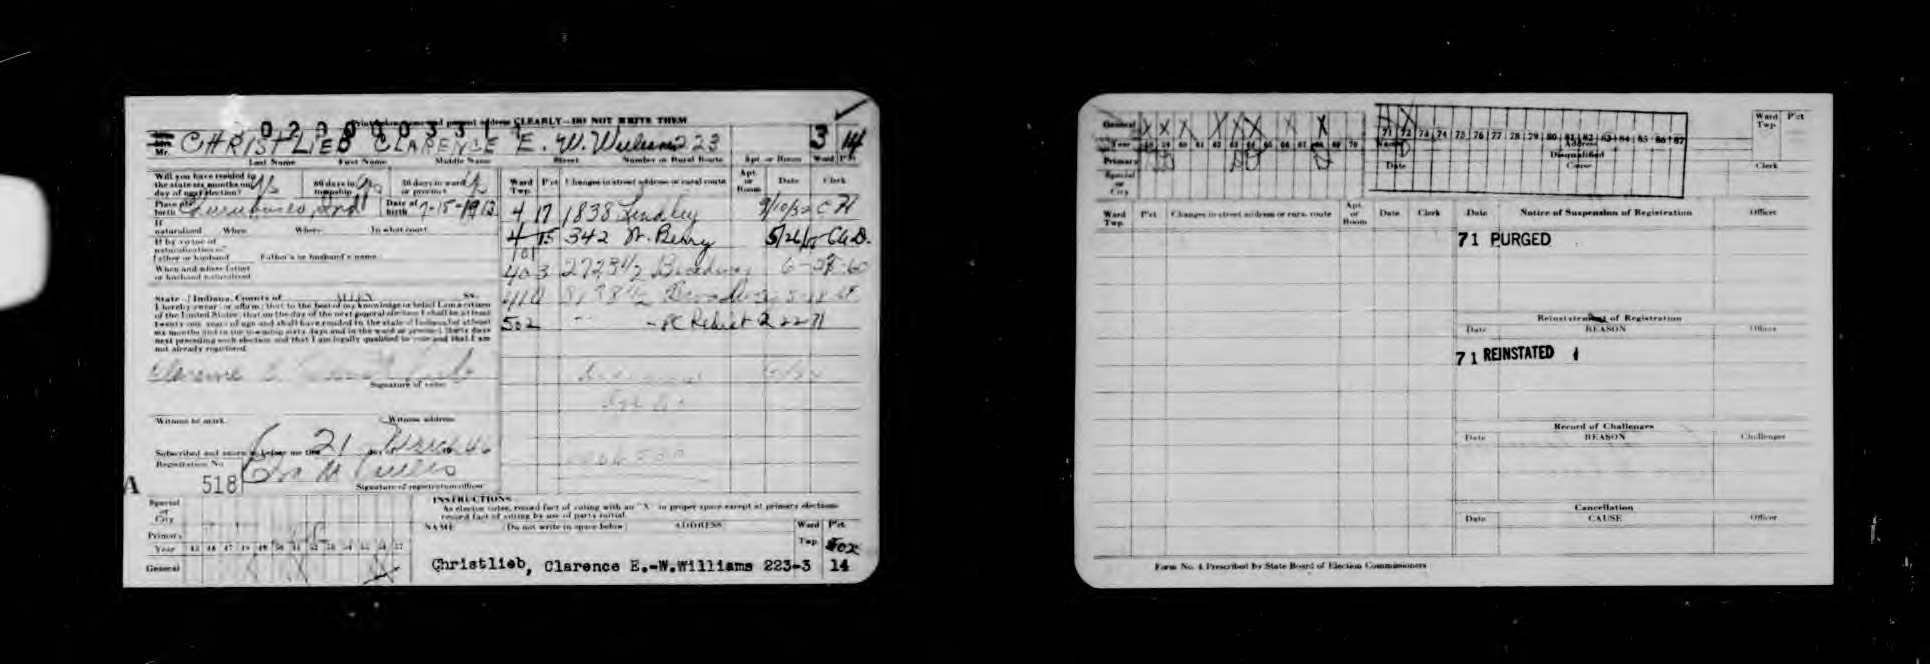 address CLEARLY—DO NOT WRITE THEM
Mr. CHRISTLIEB CLARENCE E. W. Williams 223 3 14
Last Name First Name Middle Name Street Number or Rural Route Apt. or Room Ward P'ct
Will you have resided in the state six months on day of next election? yes 60 days in township yes 30 days in ward or precinct
Place of birth Churubusco Ind Date of birth 7-15-1912
If naturalized When Where In what court
If by virtue of naturalization of
father or husband Father's or husband's name
When and where father or husband naturalized
State of Indiana, County of ALLEN SS:
I hereby swear (or affirm) that to the best of my knowledge or belief I am a citizen
of the United States; that on the day of the next general election I shall be at least
twenty-one years of age and shall have resided in the state of Indiana for at least
six months and in the township sixty days and in the ward or precinct thirty days
next preceding such election and that I am legally qualified to vote and that I am
not already registered.
Clarence E. Christlieb
Signature of voter
Witness to mark Witness address
Subscribed and sworn to before me this 21 day March 46
Registration No.
A 518
Signature of registration officer
Ward Twp. P'ct Changes in street address or rural route Apt. or Room Date Clerk
4 17 1838 Lindley 9/10/52 C H
4 15 342 W. Berry 5/26
101
403 2723 1/2 Broadway 6-28-60
410 Broadway
502 2 22 71
Special or City
Primary
Year 45 46 47 48 49 50 51 52 53 54 55 56 57
General
INSTRUCTIONS
As elector votes, record fact of voting with an "X" in proper space except at primary elections
record fact of voting by use of party initial.
NAME (Do not write in space below) ADDRESS Ward Twp. P'ct.
502
Christlieb, Clarence E.-W.Williams 223-3 14
General
Year 58 59 60 61 62 63 64 65 66 67 68 69 70
Primary
Special or City
71 72 73 74 75 76 77 78 79 80 81 82 83 84 85 86 87
Name Address
Disqualified
Date Cause
Ward Twp. P'ct
Clerk
Ward Twp. P'ct Changes in street address or rural route Apt. or Room Date Clerk Date Notice of Suspension of Registration Officer
71 PURGED
Reinstatement of Registration
Date REASON Officer
71 REINSTATED
Record of Challenges
Date REASON Challenger
Cancellation
Date CAUSE Officer
Form No. 4 Prescribed by State Board of Election Commissioners